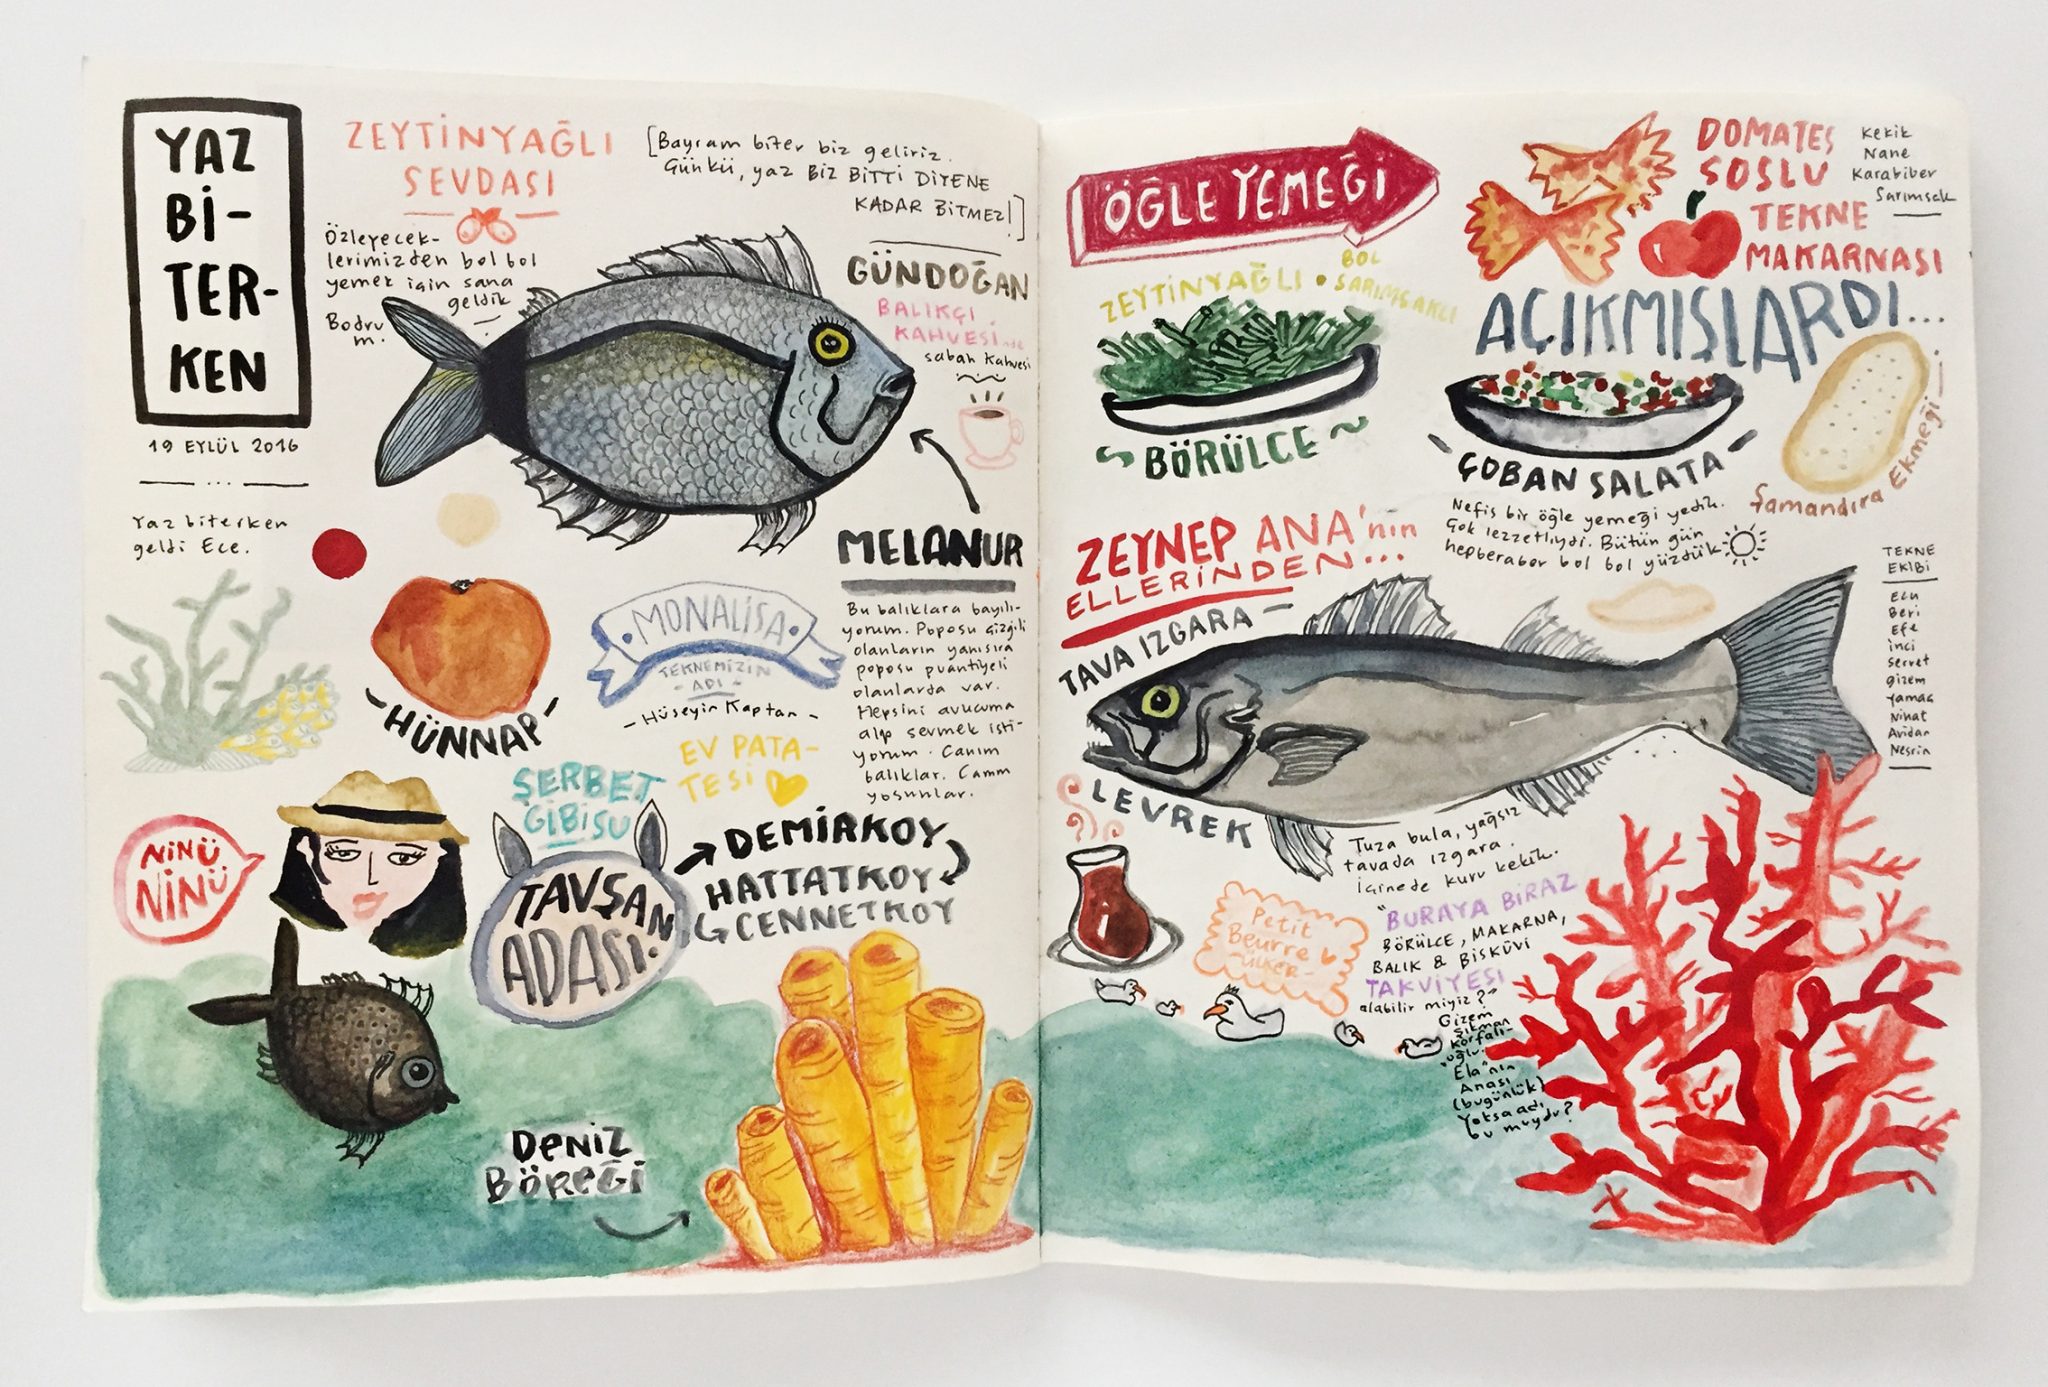 YAZ
Bİ-
TER-
KEN
19 EYLÜL 2016
Yaz biterken
geldi Ece.
ZEYTİNYAĞLI
SEVDASI
Özleyecek-
lerimizden bol bol
yemek için sana
geldik
Bodru
m.
[Bayram biter biz geliriz.
Günkü, yaz BİZ BİTTİ DİYENE
KADAR BİTMEZ!]
GÜNDOĞAN
BALIKÇI
KAHVESİ'nde
sabah kahvesi
MELANUR
Bu balıklara bayılı-
yorum. Poposu çizgili
olanların yanısıra
poposu puantiyeli
olanlarda var.
Hepsini avucuma
alıp sevmek isti-
yorum. Canım
balıklar. Canım
yosunlar.
HÜNNAP
MONALİSA
TEKNEMİZİN
- ADI -
- Hüseyin Kaptan -
EV PATA-
TESİ
ŞERBET
GİBİSU
TAVŞAN
ADASI.
DEMİRKOY
HATTATKOY
CENNETKOY
NİNÜ
NİNÜ
DENİZ
BÖREĞİ
ÖĞLE YEMEĞİ
ZEYTİNYAĞLI • BOL
SARIMSAKLI
BÖRÜLCE
DOMATES
SOSLU
TEKNE
MAKARNASI
Kekik
Nane
Karabiber
Sarımsak
AÇIKMIŞLARDI...
ÇOBAN SALATA
Şamandıra Ekmeği
Nefis bir öğle yemeği yedik.
Çok lezzetliydi. Bütün gün
hepberaber bol bol yüzdük
ZEYNEP ANA'nın
ELLERİNDEN...
TAVA IZGARA -
LEVREK
TEKNE
EKİBİ
Ece
Beri
Efe
inci
Servet
gizem
Yamaç
Nihat
Avidan
Nesrin
Tuza bula, yağsız
tavada ızgara.
İçinede kuru kekik.
Petit
Beurre
ÜLKER
"BURAYA BİRAZ
BÖRÜLCE, MAKARNA,
BALIK & BİSKÜVİ
TAKVİYESİ
alabilir miyiz?"
Gizem
Şıkman
Korfalı-
oğlu.
"Ela"nın
Anası
(bugünlük)
Yoksa adı
bu muydu?